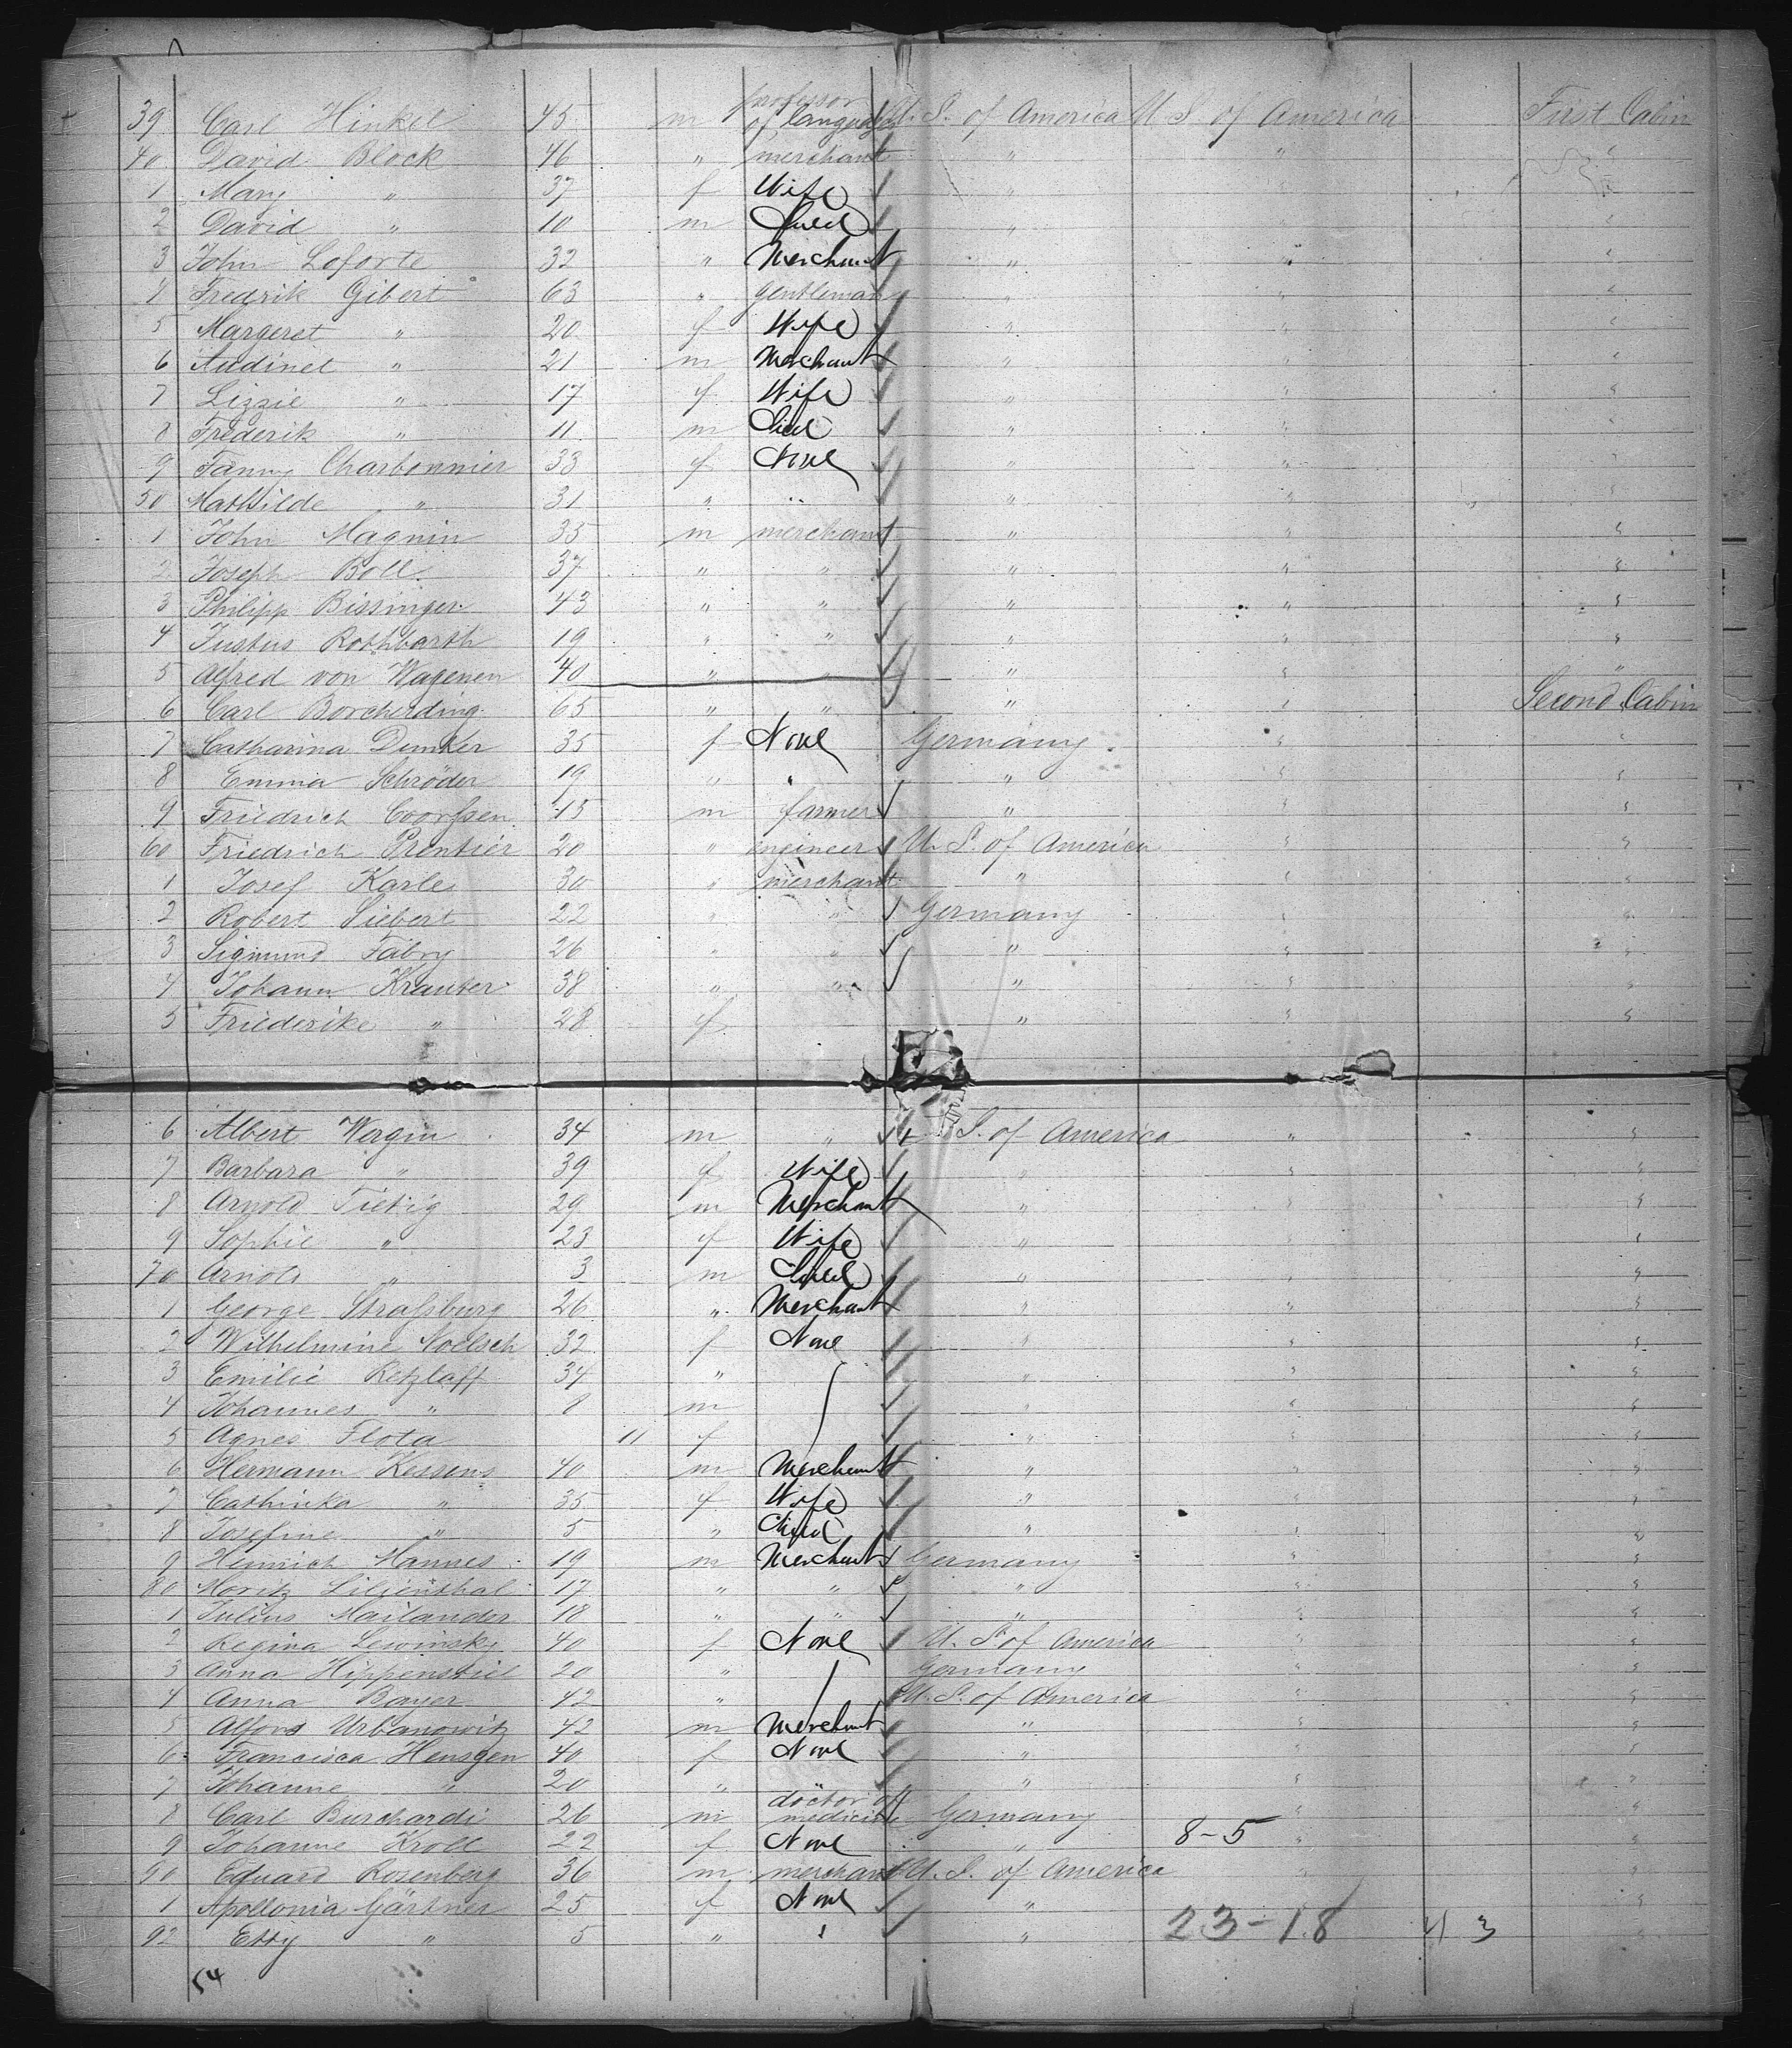 39 Carl Hinkel 45 m professor of languages U. S. of America U. S. of America First Cabin
40 David Block 46 " merchant " " "
1 Mary " 37 f Wife " " "
2 David " 10 m Child " " "
3 John Leforte 32 " Merchant " " "
4 Fredrik Gibert 63 " gentleman " " "
5 Margeret " 20 f Wife " " "
6 Audinet " 21 m Merchant " " "
7 Lizzie " 17 f Wife " " "
8 Frederik " 11 m Child " " "
9 Fanny Charbonnier 33 f None " " "
50 Mathilde " 31 " " " " "
1 John Magnin 35 m merchant " " "
2 Joseph Boll 37 " " " " "
3 Philipp Bissinger 43 " " " " "
4 Justus Rothbarth 19 " " " " "
5 Alfred von Wagenen 40 " " " " "
6 Carl Borcherding 65 " " " " Second Cabin
7 Catharina Dunker 35 f None Germany " "
8 Emma Schröder 19 " " " " "
9 Friedrich Coorssen 15 m farmer " " "
60 Friedrich Prentier 20 " engineer U. S. of America " "
1 Josef Karle 30 " merchant " " "
2 Robert Siebert 22 " " Germany " "
3 Sigmund Fabry 26 " " " " "
4 Johann Krauter 38 " " " " "
5 Friederike " 28 f " " "
6 Albert Wergin 34 m " S. of America " "
7 Barbara " 39 f Wife " " "
8 Arnold Tietig 29 m Merchant " " "
9 Sophie " 23 f Wife " " "
70 Arnold " 3 m Child " " "
1 George Strassburg 26 " Merchant " " "
2 Wilhelmine Noelsch 32 f None " " "
3 Emilie Retzlaff 34 " " " "
4 Johannes " 8 m " " "
5 Agnes Flota 11 f " " "
6 Hermann Kessens 40 m Merchant " " "
7 Cathinka " 35 f Wife " " "
8 Josefine " 5 " Child " " "
9 Heinrich Hannes 19 m Merchant Germany " "
80 Moritz Lilienthal 17 " " " " "
1 Julius Mailander 18 " " " " "
2 Regina Lewinsky 40 f None U. S. of America " "
3 Anna Hippenstiel 20 " Germany " "
4 Anna Bayer 42 " U. S. of America " "
5 Alfons Urbanowitz 42 m Merchant " " "
6 Francisca Hensgen 40 f None " " "
7 Johanne " 20 " " " "
8 Carl Burchardi 26 m doctor of medicine Germany " "
9 Johanne Kroll 22 f None " 8-5 " "
90 Eduard Rosenberg 36 m merchant U. S. of America " "
1 Apollonia Gärtner 25 f None " " "
92 Etty " 5 " " 23-18 4 3
54